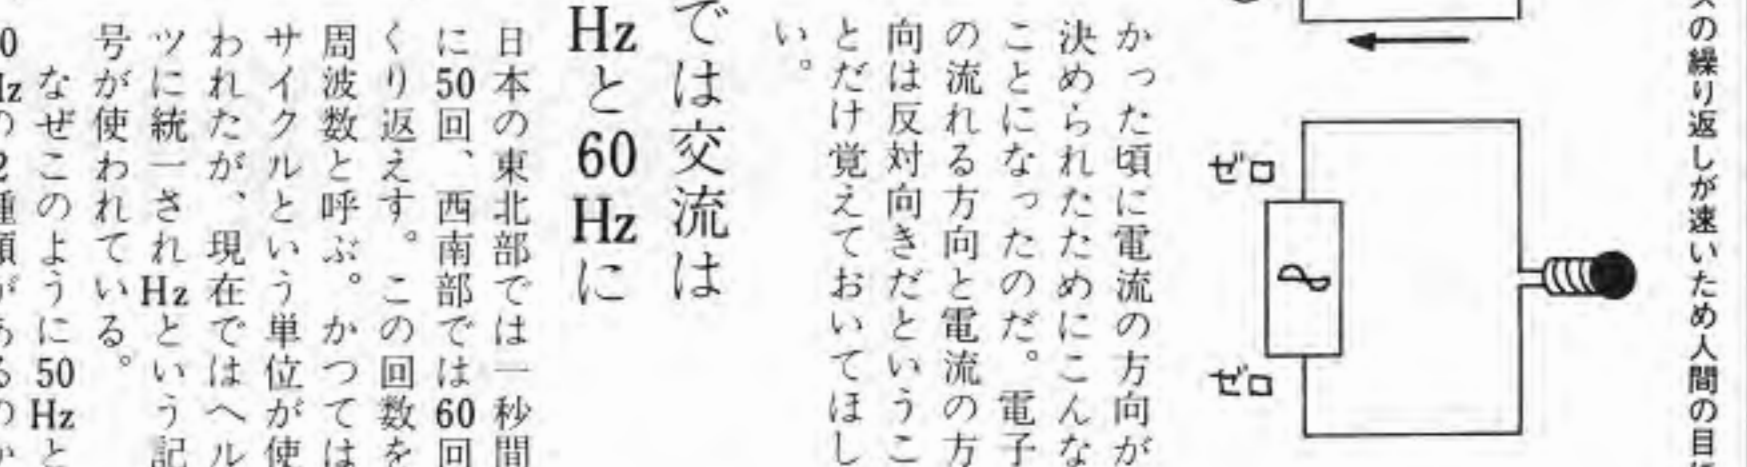 スの繰り返しが速いため人間の目に
ゼロ
ゼロ
かった頃に電流の方向が
決められたためにこんな
ことになったのだ。電子
の流れる方向と電流の方
向は反対向きだというこ
とだけ覚えておいてほし
い。
では交流は
Hzと60Hzに
日本の東北部では一秒間
に50回、西南部では60回
くり返えす。この回数を
周波数と呼ぶ。かつては
サイクルという単位が使
われたが、現在ではヘル
ツに統一されHzという記
号が使われている。
なぜこのように50Hzと
0Hzの2種類があるのか